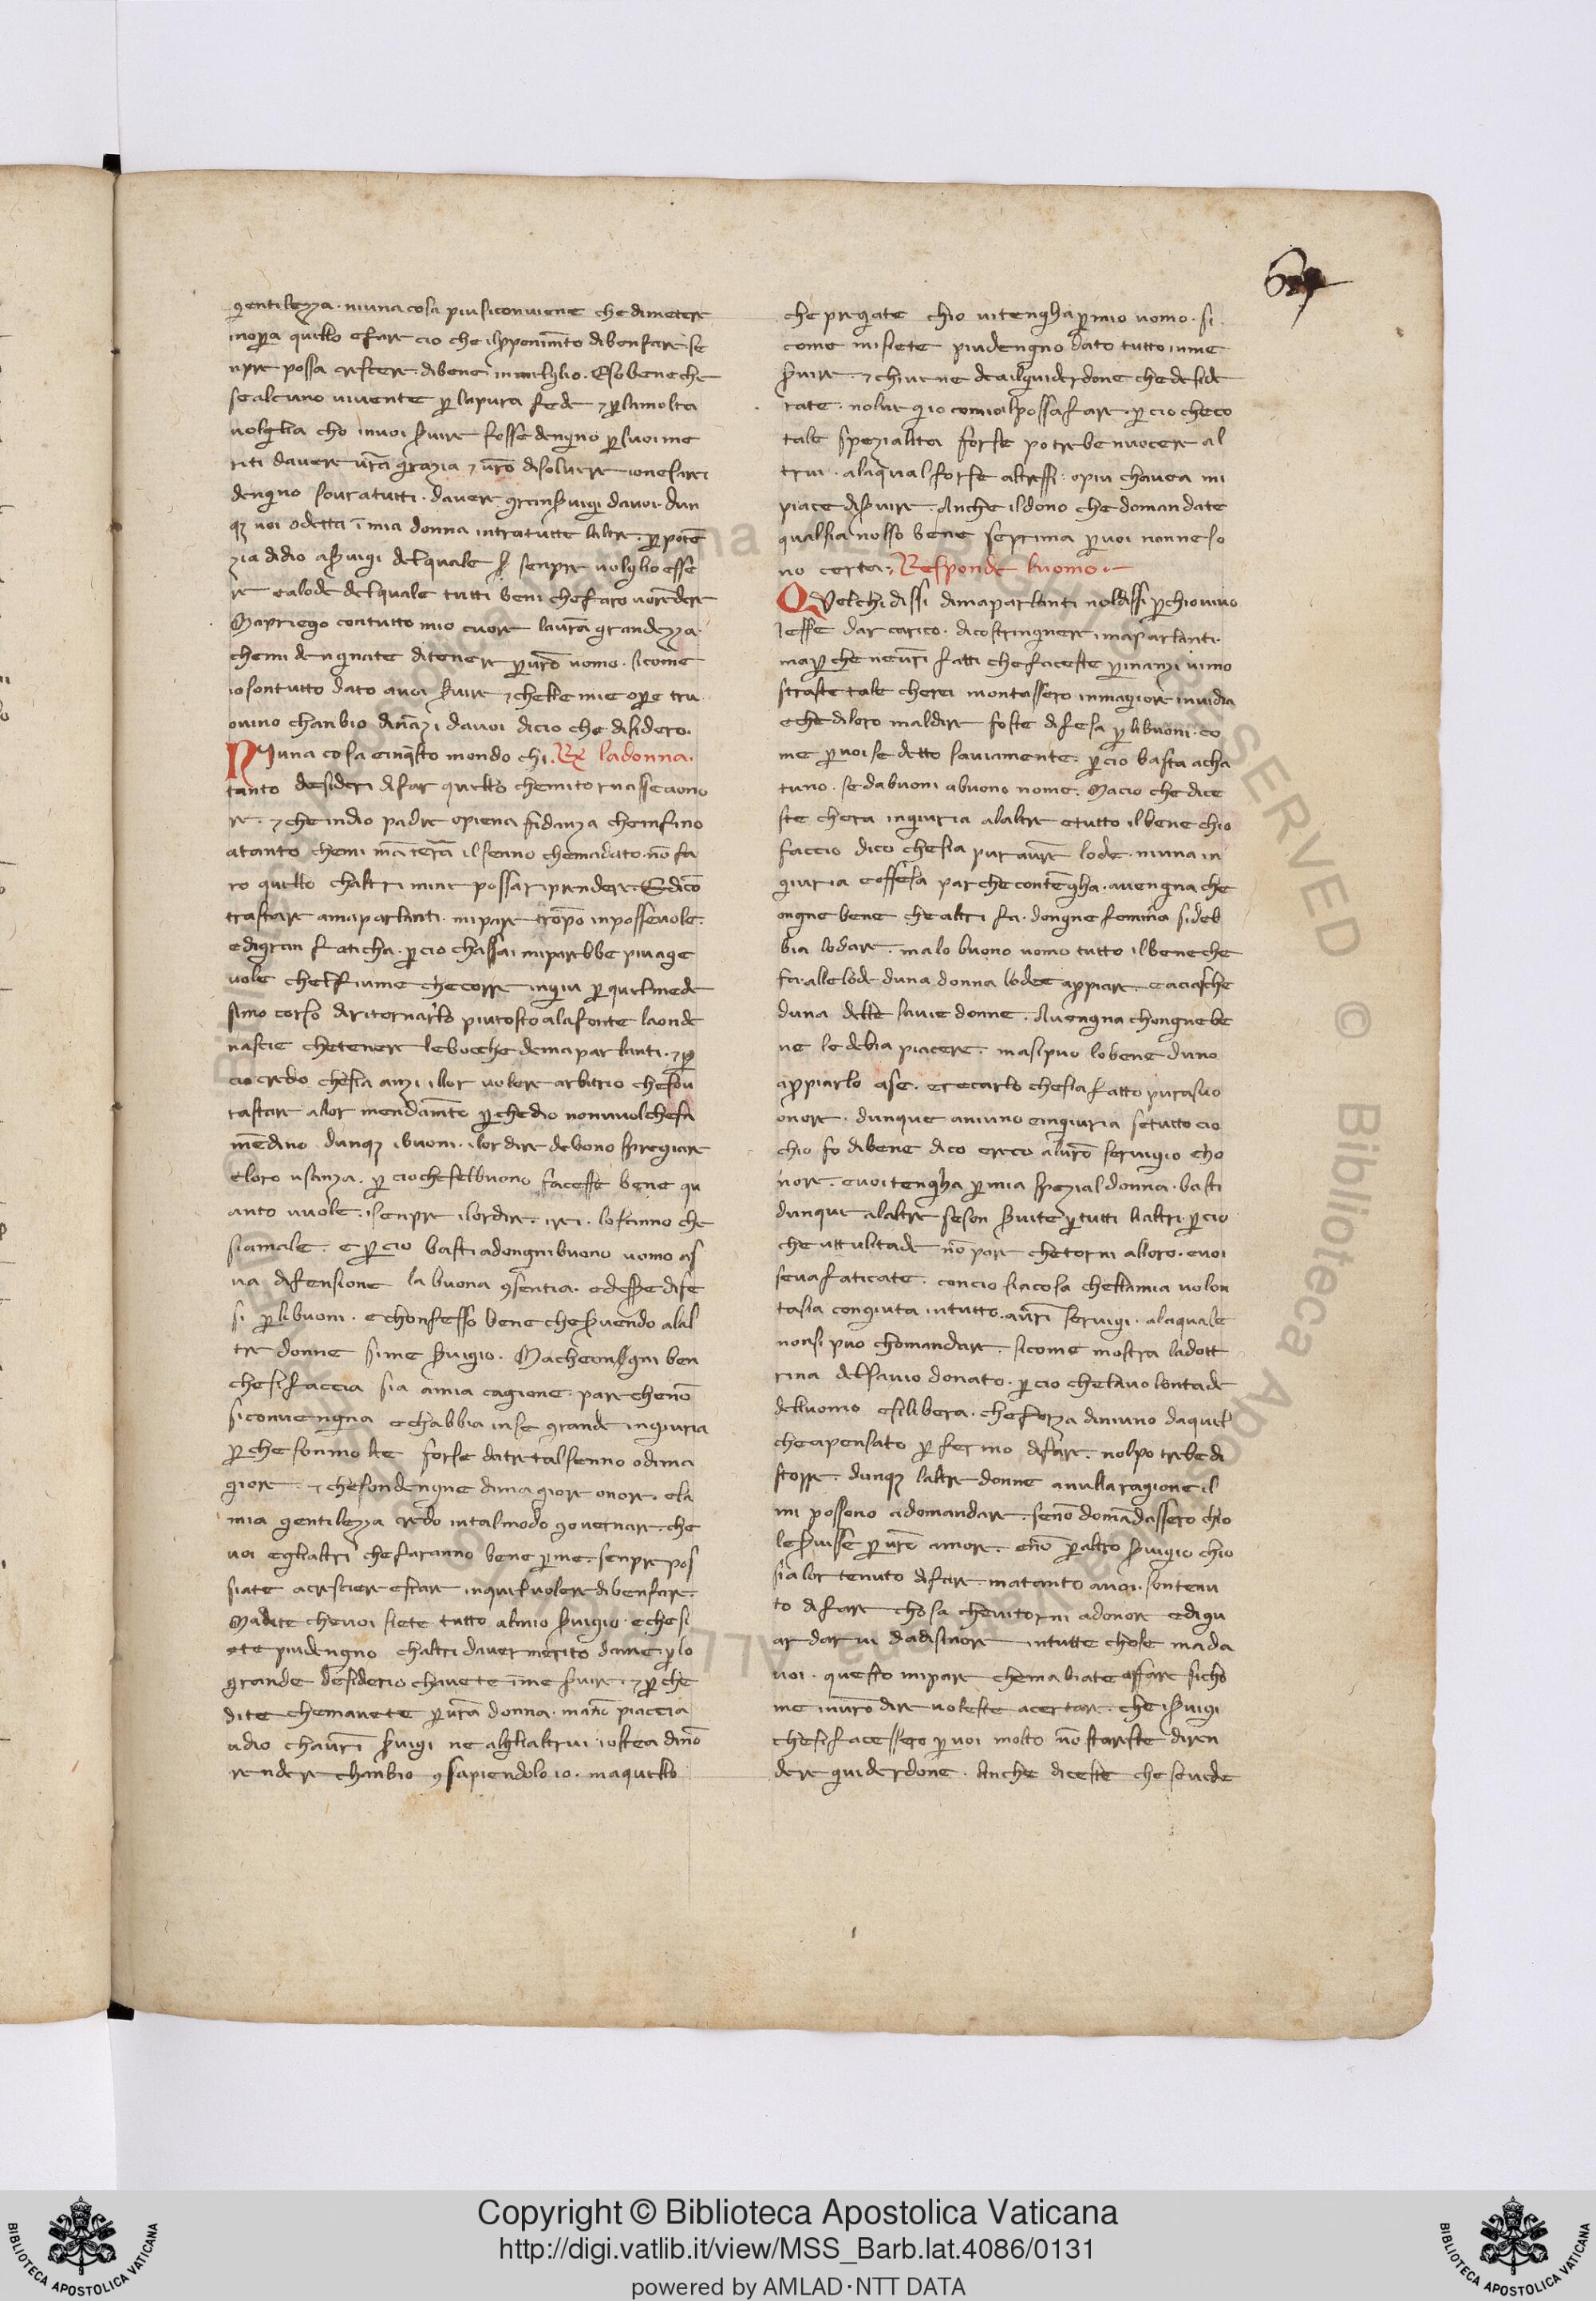 gentilezza. niuna cosa piu si conviene che di metere
inopera quello e fare cio che il proponimento di ben fare se
npre possa crescere. di bene in milglio. E so bene che
se alcuno vivente per la pura fede & per la molta
volglia cho in voi servire fosse dengno per suoi me
riti davere vrā grazia & vrō disolvere io ne sarei
dengno sovra tutti. davere gran servigi da voi. dun
qȝ voi o detta ī mia donna intra tutte laltre. per potē
zia didio a servigi del quale senpre volglio esse
re e a lode del quale tutti beni che faro vorēdere
Ma priego con tutto mio cuore la vrā grandezza.
che mi dengniate di tenere per vrō uomo. si come
io son tutto dato a voi servire & chelle mie opere tru
ovino chanbio dināzi da voi di cio che disidero.
Niuna cosa e in qsto mondo chi. R la donna.
tanto desideri di far quello che mi tornasse a ono
re. & che in dio padre o piena fidanza che infino
a tanto che mi māterā il senno che ma dato. nō fa
ro quello chaltri mine possa riprendere. E di cō
trastare a ma parlanti. mi pare tropo inpossevole.
e di gran faticha. per cio chassai mi parebbe piu age
vole chel fiume che corre in giu per quel mede
simo corso di ritornarlo piu tosto ala fonte la onde
nascie che tenere le bocche de ma parlanti. & per
cio credo che sia anzi illor volere arbitrio che sou
rastare a lor mendamēto per che dio non vuol che sa
mēdino dunqȝ i buoni. i lor dire debono spregiare
e loro usanza. per cio che sel buono facesse bene qu
anto vuole. senpre i lor dire. irei. lo fanno che
sia male. e per cio basti a dongni buono uomo a s
ua difensione la buona consentia. ed essere dife
si per li buoni. e chonfesso bene che servendo alal
tre donne si me servigio. Ma che congni ben
che si faccia sia a mia cagione. pare che nō
si convengna e chabbia in se grande ingiuria
per che son molte forse da tre tal senno o di ma
giore. & che son dengne di magiore onore. e la
mia gentilezza credo in tal modo governare. che
voi e gli altri che faranno bene per me. senpre pos
siate a crescier e stare in quel volere di ben fare.
Ma dite che voi siete tutto al mio servigio. e che si
ete piu dengno chaltri daver merito da me per lo
grande desiderio chavete ī me servire. & per che
dite che mavete per vrā donna. ma nō piaccia
a dio cha vrī servigi ne a gli altrui io stea di nō
rendere chanbio consapiendolo io. ma quello
che pregiate chio vi tengha per mio uomo. si
come mi siete piu dengno dato tutto in me
servire. & chi ve ne dea il guiderdone che deside
rate. nol veg io comal possa fare. per cio che co
tale spezialita forse potrebe nuocere al
trui. ala qual forse altressi. o piu chavea mi
piace di servire. Anche il dono che domandate
qual sia nol so bene se prima per voi non ne so
no certa. Responde luomo.
Quel chi dissi di ma parlanti nol dissi per chio vivo
lesse dar carico. di costringnere i ma parlanti.
ma per che ne vrī fatti che faceste per inanzi vi mo
straste tale che rei montassero in magiore invidia
e che di loro mal dire foste difesa per li buoni. co
me per voi se detto saviamente. per cio basta a cha
tuno. se da buoni a buono nome. Ma cio che dice
ste chera ingiuria alaltre e tutto il bene chio
faccio dico che sia pur a vrē lode. niuna in
giuria e offesa par che contēgha. avengna che
ongne bene che altri fa. dongne femina si deb
bia lodare. ma lo buono uomo tutto il bene che
fa. alle lode duna donna lo dee apropiare. e a ciasche
duna delle savie donne. Avengna chongne be
ne le debia piacere. ma si puo lo bene duno
apropiarlo a se. e recarlo che sia fatto pur a suo
onore. dunque a niuno e ingiuria se tutto cio
chio fo di bene dico e reco al vrō servigio e ho
nore. e voi tengha per mia spezial donna. basti
dunque alaltre se son servite per tutti li altri. per cio
che uttulitade nō pare che torni alloro. e voi
se va faticate. con cio sia cosa chella mia volon
ta sia congiuta in tutto. a vrī servigi. ala quale
non si puo chomandare. si come mostra la dott
rina del savio donato. per cio che la volontade
delluomo e si libera. che forza di niuno da quel
che a pensato per fermo di fare. nol potrebe di
storre. dunqȝ laltre donne a nulla ragione il
mi posseno adomandare. se nō domādassero chio
le servisse per vrō amore. e nō per altro servigio chio
sia lor tenuto di fare. ma tanto a voi. son tenu
to di fare chosa che vi torni adonore e di gu
ardar vi da disinore in tutte chose ma da
voi. questo mi pare che mabiate affare sicho
me in vrō dire voleste acertare. che i servigi
che si facessero per voi molto nō stareste di ren
dere guiderdone. Anche diceste che se vede
Copyright © Biblioteca Apostolica Vaticana
http://digi.vatlib.it/view/MSS_Barb.lat.4086/0131
powered by AMLAD·NTT DATA
BIBLIOTECA APOSTOLICA VATICANA
BIBLIOTECA APOSTOLICA VATICANA